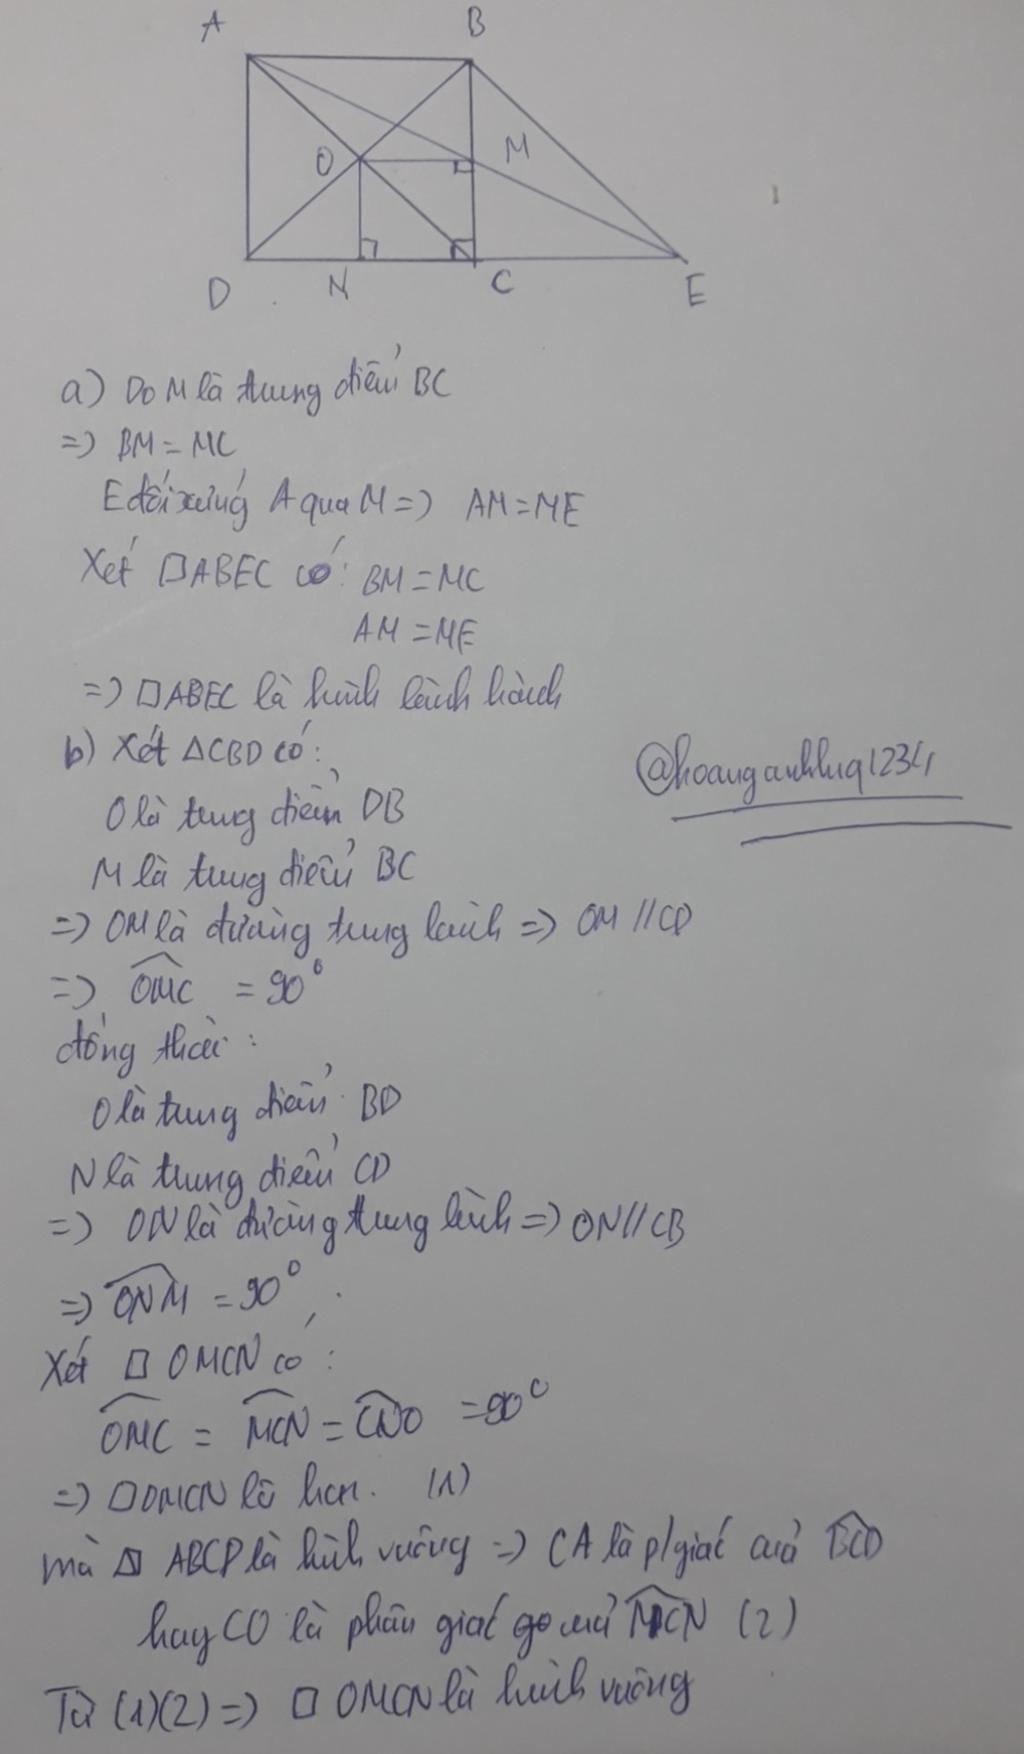 A B
O M
D N C E
a) Do M là trung điểm BC
=> BM = MC
E đối xứng A qua M => AM = ME
Xét □ABEC có: BM = MC
AM = ME
=> □ABEC là hình bình hành
b) Xét △CBD có:
O là trung điểm DB
@hoanganhhuq1234
M là trung điểm BC
=> OM là đường trung bình => OM // CD
=> OMC = 90°
đồng thời:
O là trung điểm BD
N là trung điểm CD
=> ON là đường trung bình => ON // CB
=> ONM = 90°
Xét □ OMCN có:
OMC = MCN = CNO = 90°
=> □OMCN là hcn. (1)
mà □ ABCD là hình vuông => CA là p/giác của BCD
hay CO là phân giác của MCN (2)
Từ (1)(2) => □ OMCN là hình vuông